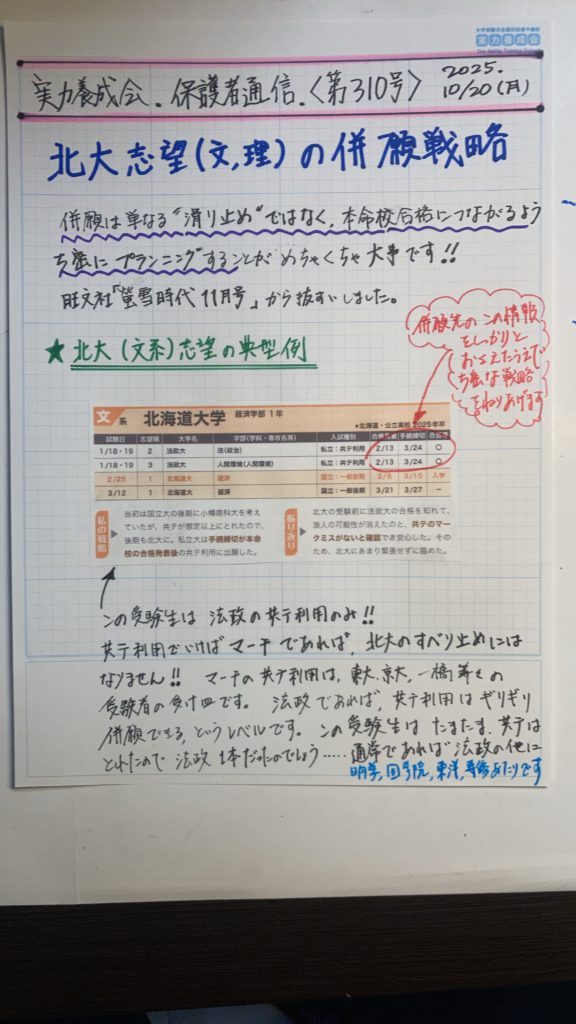 実力養成会
実力養成会.保護者通信.〈第310号〉
2025.
10/20(月)
北大志望(文,理)の併願戦略
併願は単なる“滑り止め”ではなく,本命校合格につながるよう
ち密にプランニングすることがめちゃくちゃ大事です!!
旺文社「螢雪時代11月号」から抜すいしました。
併願先のこの情報
をしっかりと
おさえたうえで
ち密な戦略
をねりあげます
★北大(文系)志望の典型例
文系 北海道大学 経済学部1年 ●北海道・公立高校 2025年卒
試験日 志望順 大学名 学部(学科・専攻名等) 入試種別 合格発表 手続締切 合否等
1/18・19 2 法政大 法(政治) 私立:共テ利用 2/13 3/24 ○
1/18・19 3 法政大 人間環境(人間環境) 私立:共テ利用 2/13 3/24 ○
2/25 1 北海道大 経済 国立:一般前期 3/6 3/15 入学
3/12 1 北海道大 経済 国立:一般後期 3/21 3/27 −
私の戦略
当初は国立大の後期に小樽商科大を考え
ていたが、共テが想定以上にとれたので、
後期も北大に。私立大は手続締切が本命
校の合格発表後の共テ利用に出願した。
振り返り
北大の受験前に法政大の合格を知れて、
浪人の可能性が消えたのと、共テのマー
クミスがないと確認でき安心した。そのた
め、北大にあまり緊張せずに臨めた。
この受験生は 法政の共テ利用のみ!!
共テ利用でいけばマーチであれば,北大のすべり止めには
なりません!! マーチの共テ利用は,東大,京大,一橋等々の
受験者の受け皿です。 法政であれば,共テ利用はギリギリ
併願できる,というレベルです。この受験生は たまたま,共テは
とれたので 法政1本だったのでしょう……通常であれば法政の他に
明学,國學院,東洋,専修あたりです